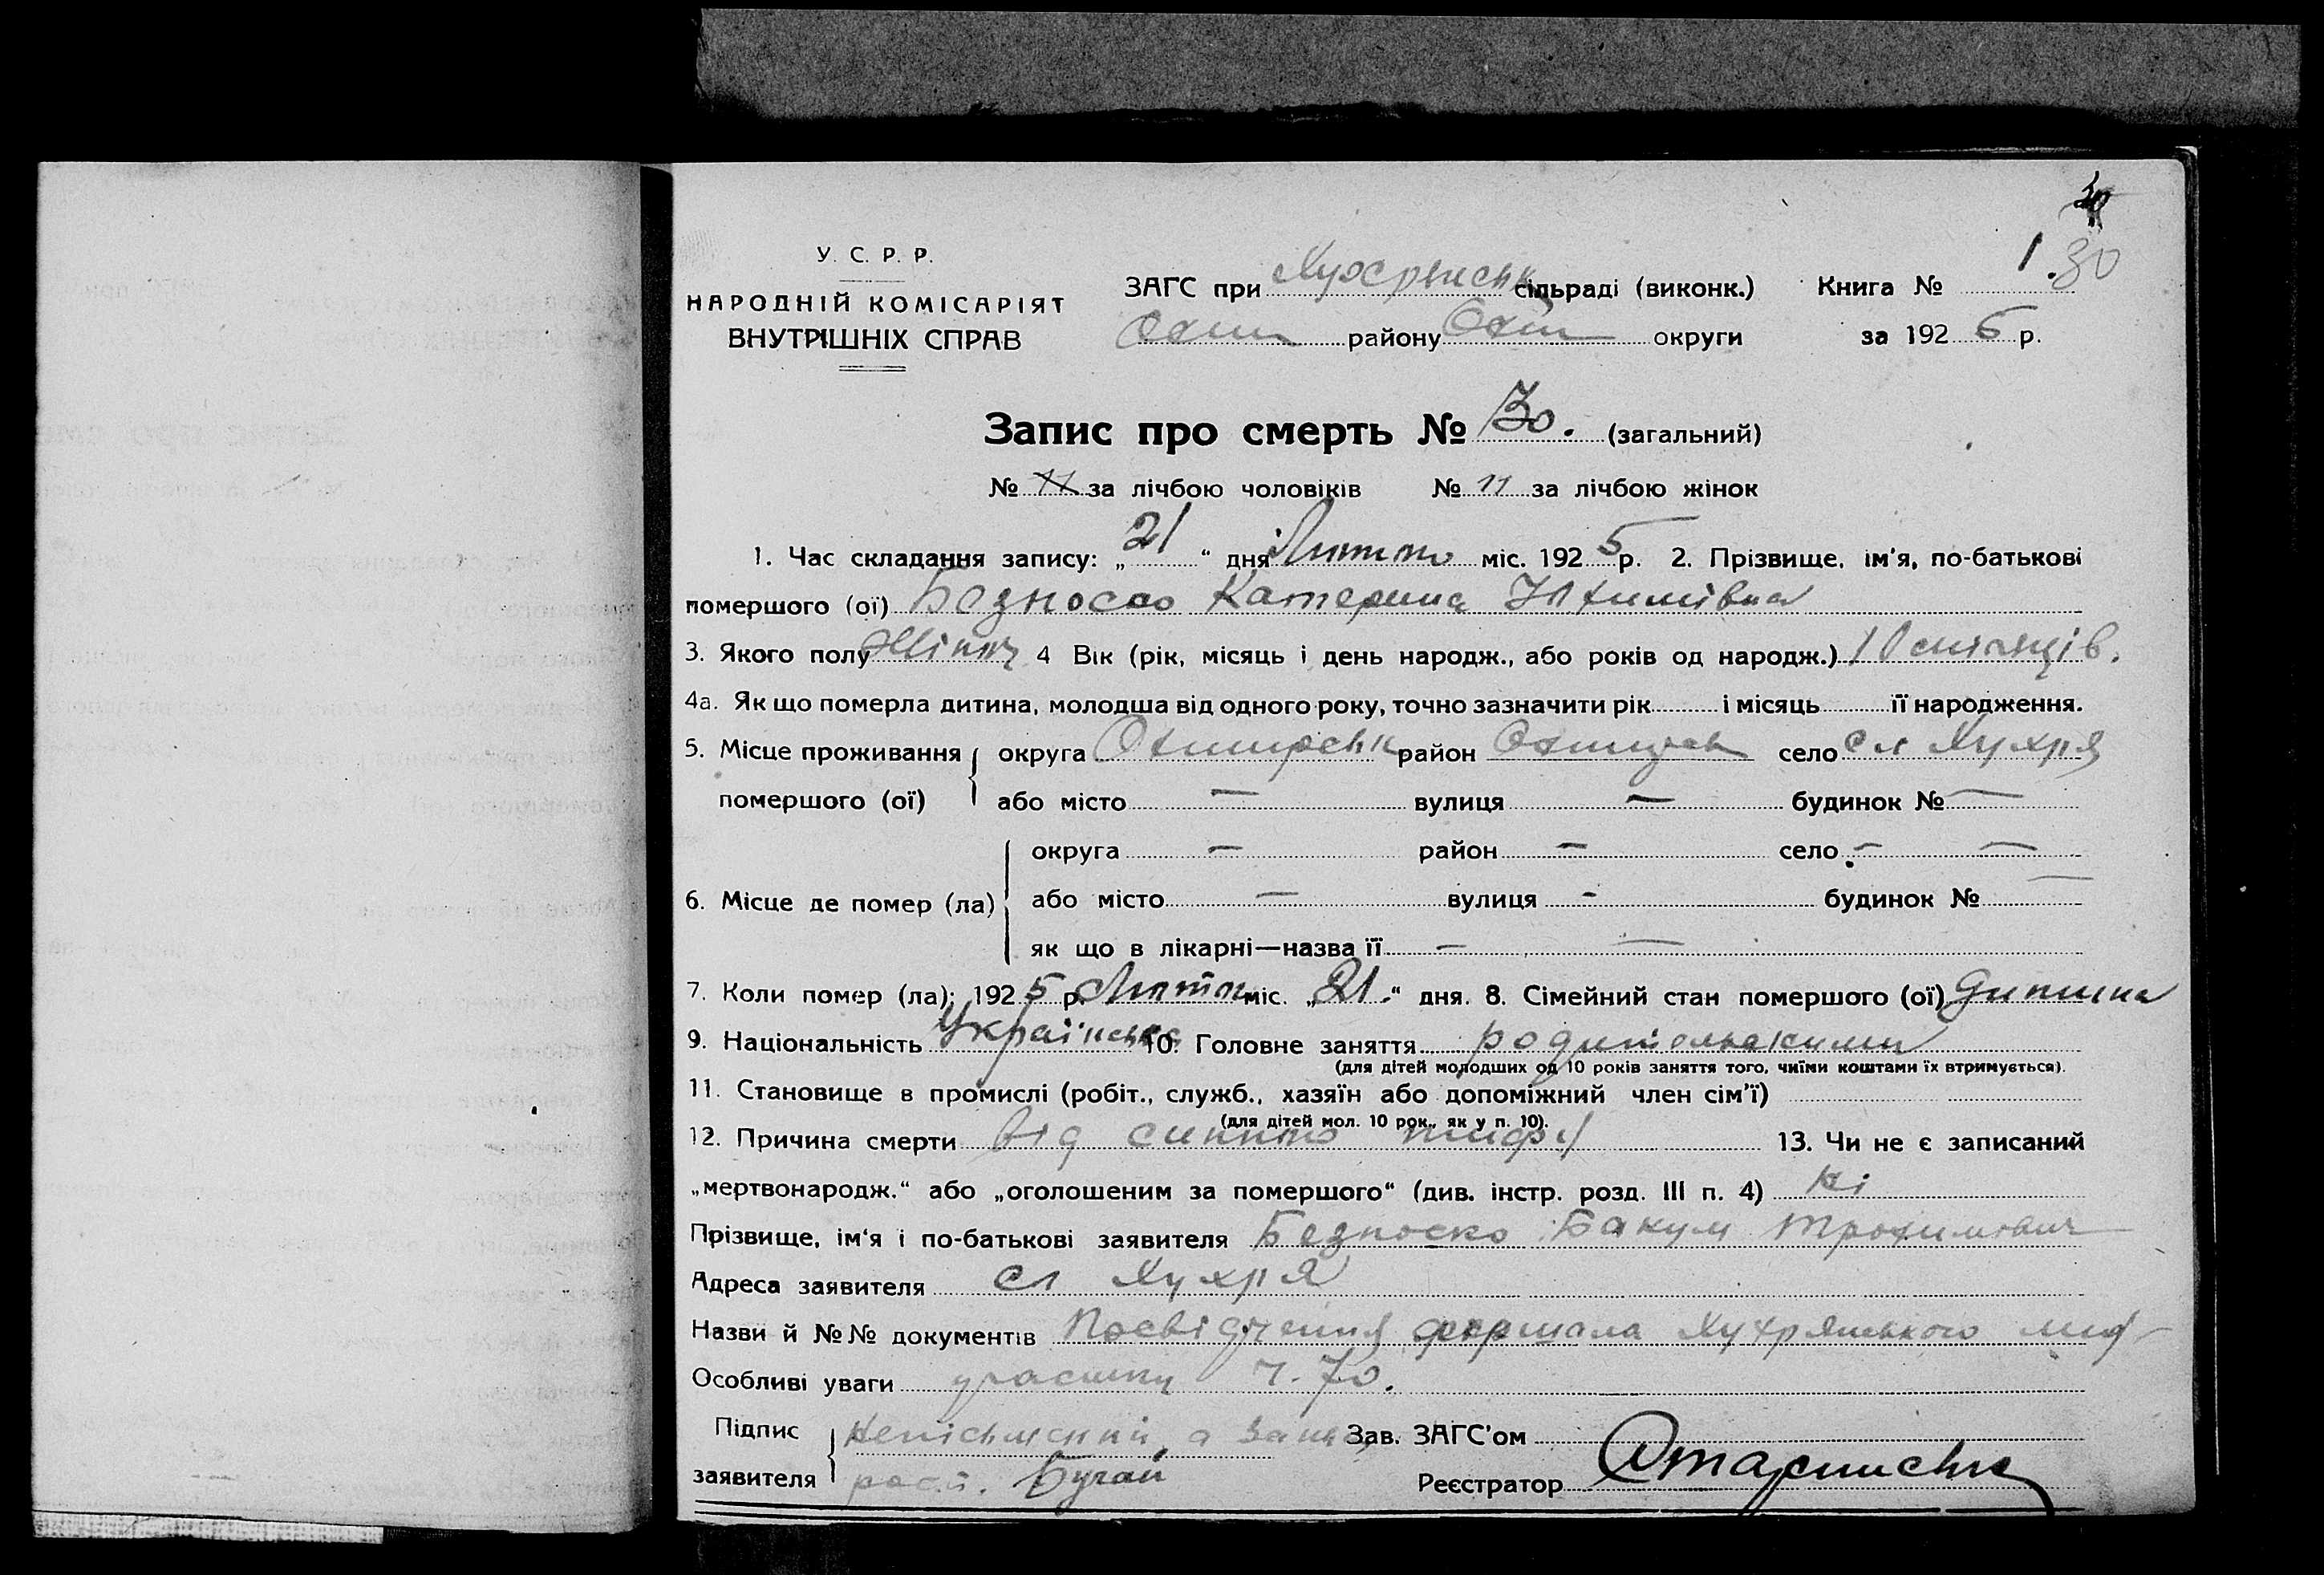 30
У. С. Р. Р.
НАРОДНІЙ КОМІСАРІЯТ
ВНУТРІШНІХ СПРАВ
ЗАГС при сільраді (виконк.) Книга № 1. 30
Охтир району Охтир округи за 1925 р.
Запис про смерть № 30. (загальний)
№ 11 за лічбою чоловіків № 11 за лічбою жінок
1. Час складання запису: „21“ дня Лютого міс. 1925 р. 2. Прізвище, ім'я, по-батькові
помершого (ої) Безноско Катерина
3. Якого полу Жіноч 4 Вік (рік, місяць і день народж., або років од народж.) 10 місяців.
4а. Як що померла дитина, молодша від одного року, точно зазначити рік і місяць її народження.
5. Місце проживання округа Охтирськ район Охтирськ село сл Хухря
помершого (ої) або місто — вулиця — будинок № —
округа — район — село — —
6. Місце де помер (ла) або місто — вулиця - будинок № —
як що в лікарні—назва її — —
7. Коли помер (ла); 1925 р. Лютого міс. „21.“ дня. 8. Сімейний стан помершого (ої) дитина
9. Національність Українська 10. Головне заняття
(для дітей молодших од 10 років заняття того, чиїми коштами їх втримується).
11. Становище в промислі (робіт., служб., хазяїн або допоміжний член сім'ї)
(для дітей мол. 10 рок., як у п. 10).
12. Причина смерти від сипного тифу 13. Чи не є записаний
„мертвонародж.“ або „оголошеним за помершого“ (див. інстр. розд. III п. 4) Ні
Прізвище, ім'я і по-батькові заявителя Безноско Трохимович
Адреса заявителя сл Хухря
Назви й №№ документів Посвідчення фершала Хухрянського мед
Особливі уваги участку ч. 70.
Підпис Неписьменний, а за Зав. ЗАГС'ом
заявителя Бугай Реєстратор